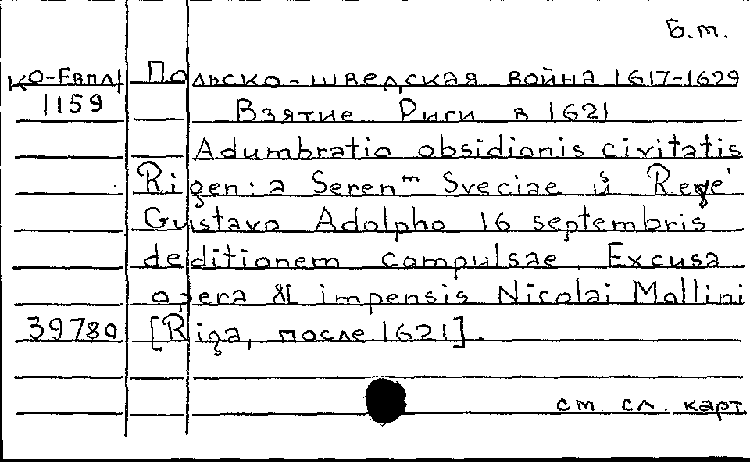 Б.т.
Ко-Евпл1 Польско-шведская война 1617-1629
1159 Взятие Риги в 1621
Adumbratio obsidionis civitatis
Rigen: a Seren^m Sveciae Rege
Gustavo Adolpho 16 septembris
deditionem compulsae Excusa
opera & impensis Nicolai Mollini
39780 [Riga, после 1621].
см сл. карт